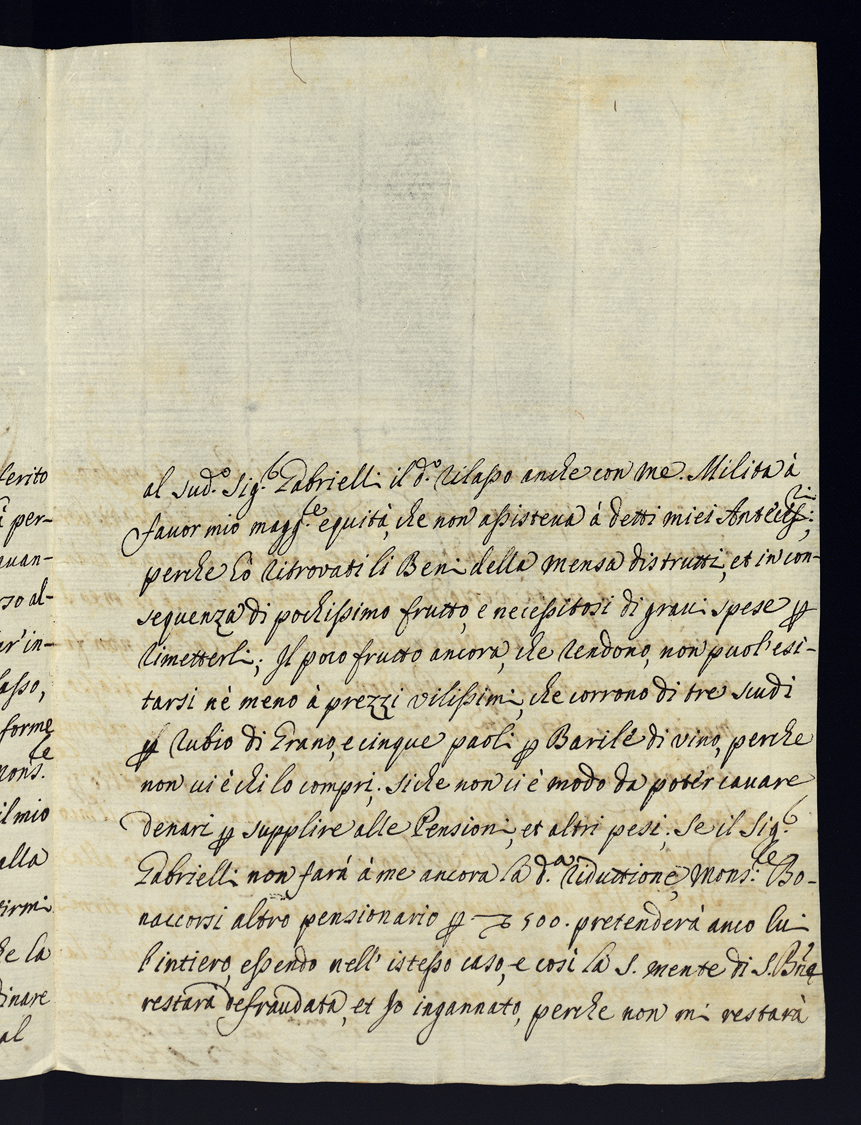 al sud.º Sig.r Gabrielli il d.º rilasso anche con me. Milita à
favor mio magg.re equità, che non assisteva à detti miei Antecess.ri;
perche hò ritrovati li Beni della mensa distrutti, et in con-
seguenza di pochissimo frutto, e necessitosi di gravi spese per
rimetterli; Il poco frutto ancora, che rendono, non puol'esi-
tarsi nè meno à prezzi vilissimi, che corrono di tre scudi
per rubio di Grano, e cinque paoli per Barile di vino, perche
non vi è chi lo compri; siche non ci è modo da poter cavare
denari per supplire alle Pensioni, et altri pesi; Se il Sig.r
Gabrielli non farà à me ancora la d.a riduttione, Mons.re Bo-
naccorsi altro pensionario per 500. pretenderà anco lui
l'intiero, essendo nell'istesso caso, e così la S. mente di S. Bne
restarà defraudata, et Io ingannato, perche non mi restarà
ferito
à per-
quan-
rso al-
ar'in-
lasso,
forme
Mons.re
il mio
alla
firmi
he la
dinare
al